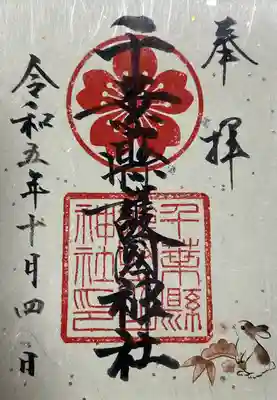 奉拝
千葉縣護國神社
千葉縣護國神社印
令和五年十月四日